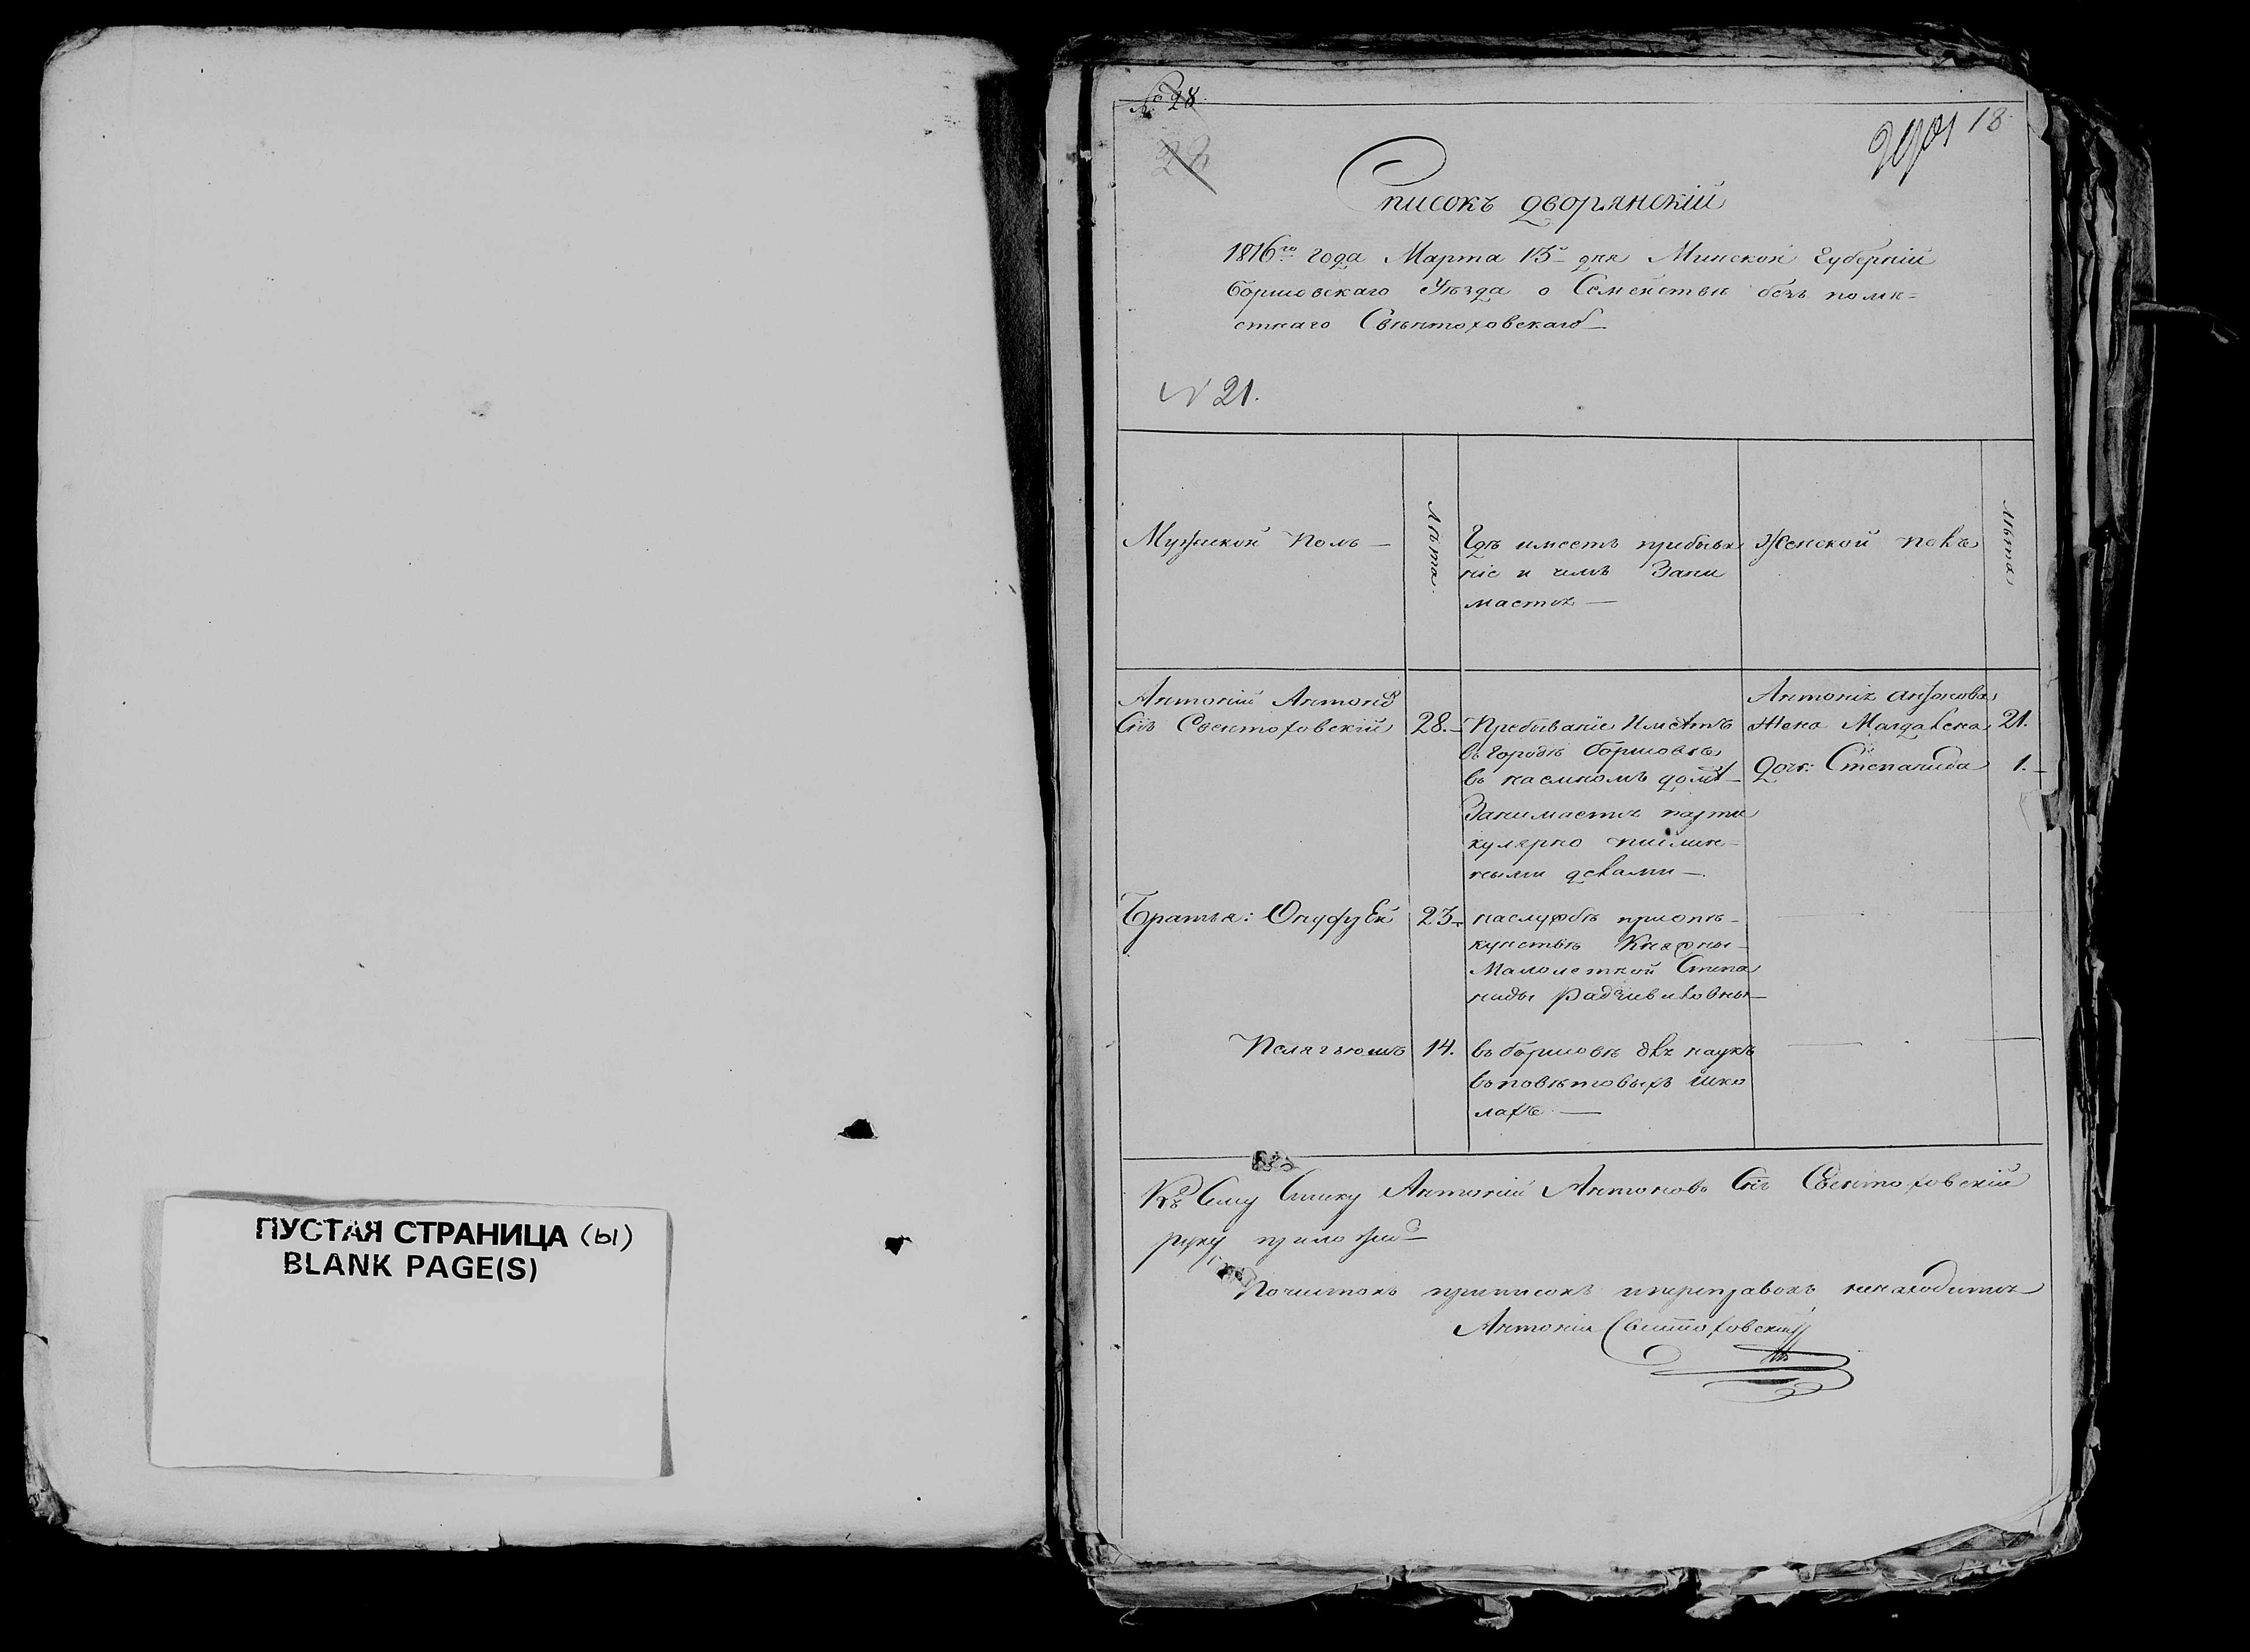 ПУСТАЯ СТРАНИЦА (ы)
BLANK PAGE(S)
№ 28
18
Списокъ дворянскій
1816го года Марта 13 дня Минской Губерніи
Борисовскаго Уѣзда о Семействѣ безъ помѣ=
стнаго Свѣнтоховскаго
N 21.
Мужеской Полъ —
Лѣта.
Гдѣ имеетъ пребыва
ніе и чемъ Зани
мается —
Женской полъ
Лѣта
Антоній Антоно
Снъ Свентоховскій
28.
Пребываніе Имѣетъ
въ Городѣ борисовѣ
въ наемномъ домѣ
Занимается парти
кулярно писмен=
ными делами —
Антонія антонова
Жена Магдалена 21.
Доч: Степанида 1.
Братья: Онуфрей 23
наслужбѣ приопѣ=
кунствѣ Княжны
Малолетной Степа
ниды Радзивиловны —
Пелягъюшъ 14.
въ борисовѣ для наукъ
въ повѣтовыхъ шко
лахъ —
Къ Сему Списку Антоній Антоновъ Снъ Свентоховскій
руку приложилъ
Почистокъ приписокъ ипереправокъ ненаходится
Антоній Свентоховскій